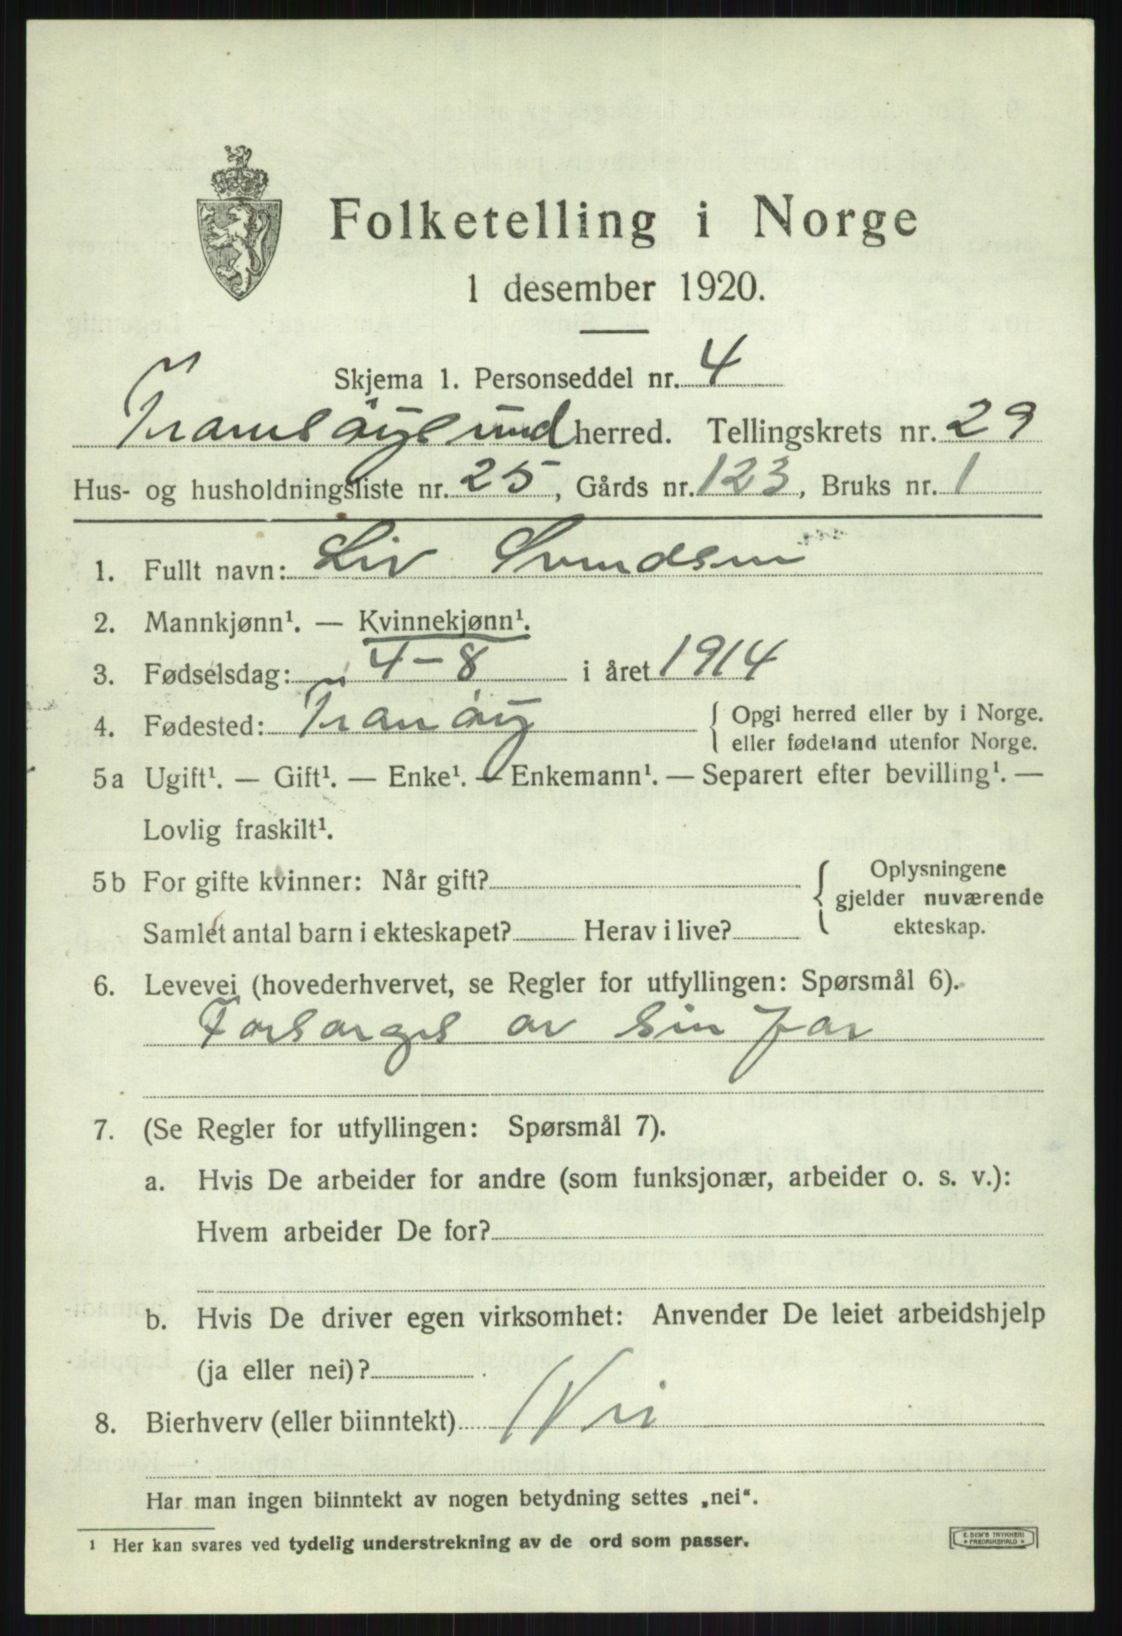 Folketelling i Norge
1 desember 1920.
Skjema 1. Personseddel nr. 4
Tromsöysund herred. Tellingskrets nr. 29
Hus- og husholdningsliste nr. 25, Gårds nr. 123, Bruks nr. 1
1. Fullt navn: Liv Svendsen
2. Mannkjønn¹. — Kvinnekjønn¹.
3. Fødselsdag: 4-8 i året 1914
4. Fødested: Tranöy { Opgi herred eller by i Norge.
eller fødeland utenfor Norge.
5a Ugift¹. — Gift¹. — Enke¹. — Enkemann¹. — Separert efter bevilling¹. —
Lovlig fraskilt¹.
5b For gifte kvinner: Når gift? { Oplysningene
gjelder nuværende
Samlet antal barn i ekteskapet? Herav i live? ekteskap.
6. Levevei (hovederhvervet, se Regler for utfyllingen: Spørsmål 6).
Forsørges av sin far
7. (Se Regler for utfyllingen: Spørsmål 7).
a. Hvis De arbeider for andre (som funksjonær, arbeider o. s. v.):
Hvem arbeider De for?
b. Hvis De driver egen virksomhet: Anvender De leiet arbeidshjelp
(ja eller nei)?
8. Bierhverv (eller biinntekt) Nei
Har man ingen biinntekt av nogen betydning settes „nei“.
¹ Her kan svares ved tydelig understrekning av de ord som passer.
E. SEM'S TRYKKERI
FREDRIKSHALD